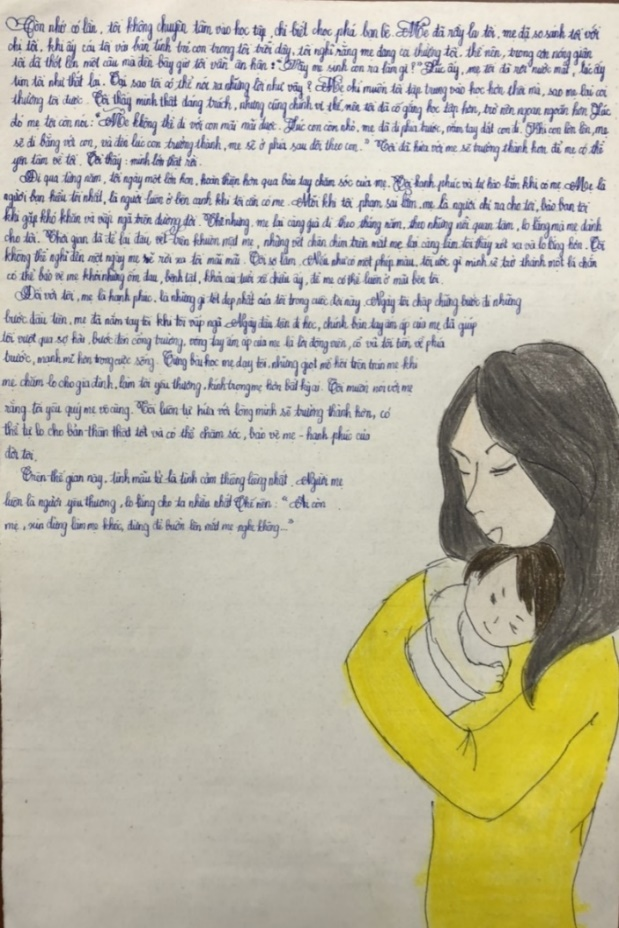 Còn nhớ có lần, tôi không chuyên tâm vào học tập, chỉ biết chọc phá bạn bè. Mẹ đã rầy la tôi, mẹ đã so sánh tôi với
chị tôi, khi ấy cái tôi và bản tính trẻ con trong tôi trỗi dậy, tôi nghĩ rằng mẹ đang coi thường tôi, thế nên, trong cơn nóng giận
tôi đã thốt lên một câu mà đến bây giờ tôi vẫn ân hận: "Vậy mẹ sinh con ra làm gì?" Lúc ấy, mẹ tôi đã rơi nước mắt, lúc ấy
tim tôi như thắt lại. Tại sao tôi có thể nói ra những lời như vậy? Mẹ chỉ muốn tôi tập trung vào học hơn thôi mà, sao mẹ lại coi
thường tôi được. Tôi thấy mình thật đáng trách, nhưng cũng chính vì thế, nên tôi đã cố gắng học tập hơn, trở nên ngoan ngoãn hơn. Lúc
đó mẹ tôi còn nói: "Mẹ không thể đi với con mãi mãi được. Lúc con còn nhỏ, mẹ đã đi phía trước, nắm tay dắt con đi. Khi con lớn lên, mẹ
sẽ đi bằng với con, và đến lúc con trưởng thành, mẹ sẽ ở phía sau dõi theo con." Tôi đã hứa với mẹ sẽ trưởng thành hơn để mẹ có thể
yên tâm về tôi. Tôi thấy mình lớn thật rồi.
Đi qua từng năm, tôi ngày một lớn hơn, hoàn thiện hơn qua bàn tay chăm sóc của mẹ. Tôi hạnh phúc và tự hào lắm khi có mẹ. Mẹ là
người bạn hiểu tôi nhất, là người luôn ở bên cạnh khi tôi cần có mẹ. Mỗi khi tôi phạm sai lầm, mẹ là người chỉ ra cho tôi, bảo ban tôi
khi gặp khó khăn và vấp ngã trên đường đời. Thế nhưng, mẹ lại càng già đi theo tháng năm, theo những nỗi quan tâm, lo lắng mà mẹ dành
cho tôi. Thời gian đã để lại dấu vết trên khuôn mặt mẹ, những vết chân chim trên mắt mẹ lại càng làm tôi thấy xót xa và lo lắng hơn. Tôi
không thể nghĩ đến một ngày mẹ sẽ rời xa tôi mãi mãi. Tôi sợ lắm. Nếu như có một phép màu, tôi ước gì mình sẽ trở thành một lá chắn
có thể bảo vệ mẹ khỏi những ốm đau, bệnh tật, khỏi cái tuổi xế chiều ấy, để mẹ có thể luôn ở mãi bên tôi.
Đối với tôi, mẹ là hạnh phúc, là những gì tốt đẹp nhất của tôi trong cuộc đời này. Ngày tôi chập chững bước đi những
bước đầu tiên, mẹ đã nắm tay tôi khi tôi vấp ngã. Ngày đầu tiên đi học, chính bàn tay ấm áp của mẹ đã giúp
tôi vượt qua sợ hãi, bước đến cổng trường, vòng tay ấm áp của mẹ là lời động viên, cổ vũ tôi tiến về phía
trước, mạnh mẽ hơn trong cuộc sống. Từng bài học mẹ dạy tôi, những giọt mồ hôi trên trán mẹ khi
mẹ chăm lo cho gia đình, làm tôi yêu thương, kính trọng mẹ hơn bất kỳ ai. Tôi muốn nói với mẹ
rằng tôi yêu quý mẹ vô cùng. Tôi luôn tự hứa với lòng mình sẽ trưởng thành hơn, có
thể tự lo cho bản thân thật tốt và có thể chăm sóc, bảo vệ mẹ - hạnh phúc của
đời tôi.
Trên thế gian này, tình mẫu tử là tình cảm thiêng liêng nhất. Người mẹ
luôn là người yêu thương, lo lắng cho ta nhiều nhất. Thế nên: "Ai còn
mẹ, xin đừng làm mẹ khóc, đừng để buồn lên mắt mẹ nghe không..."